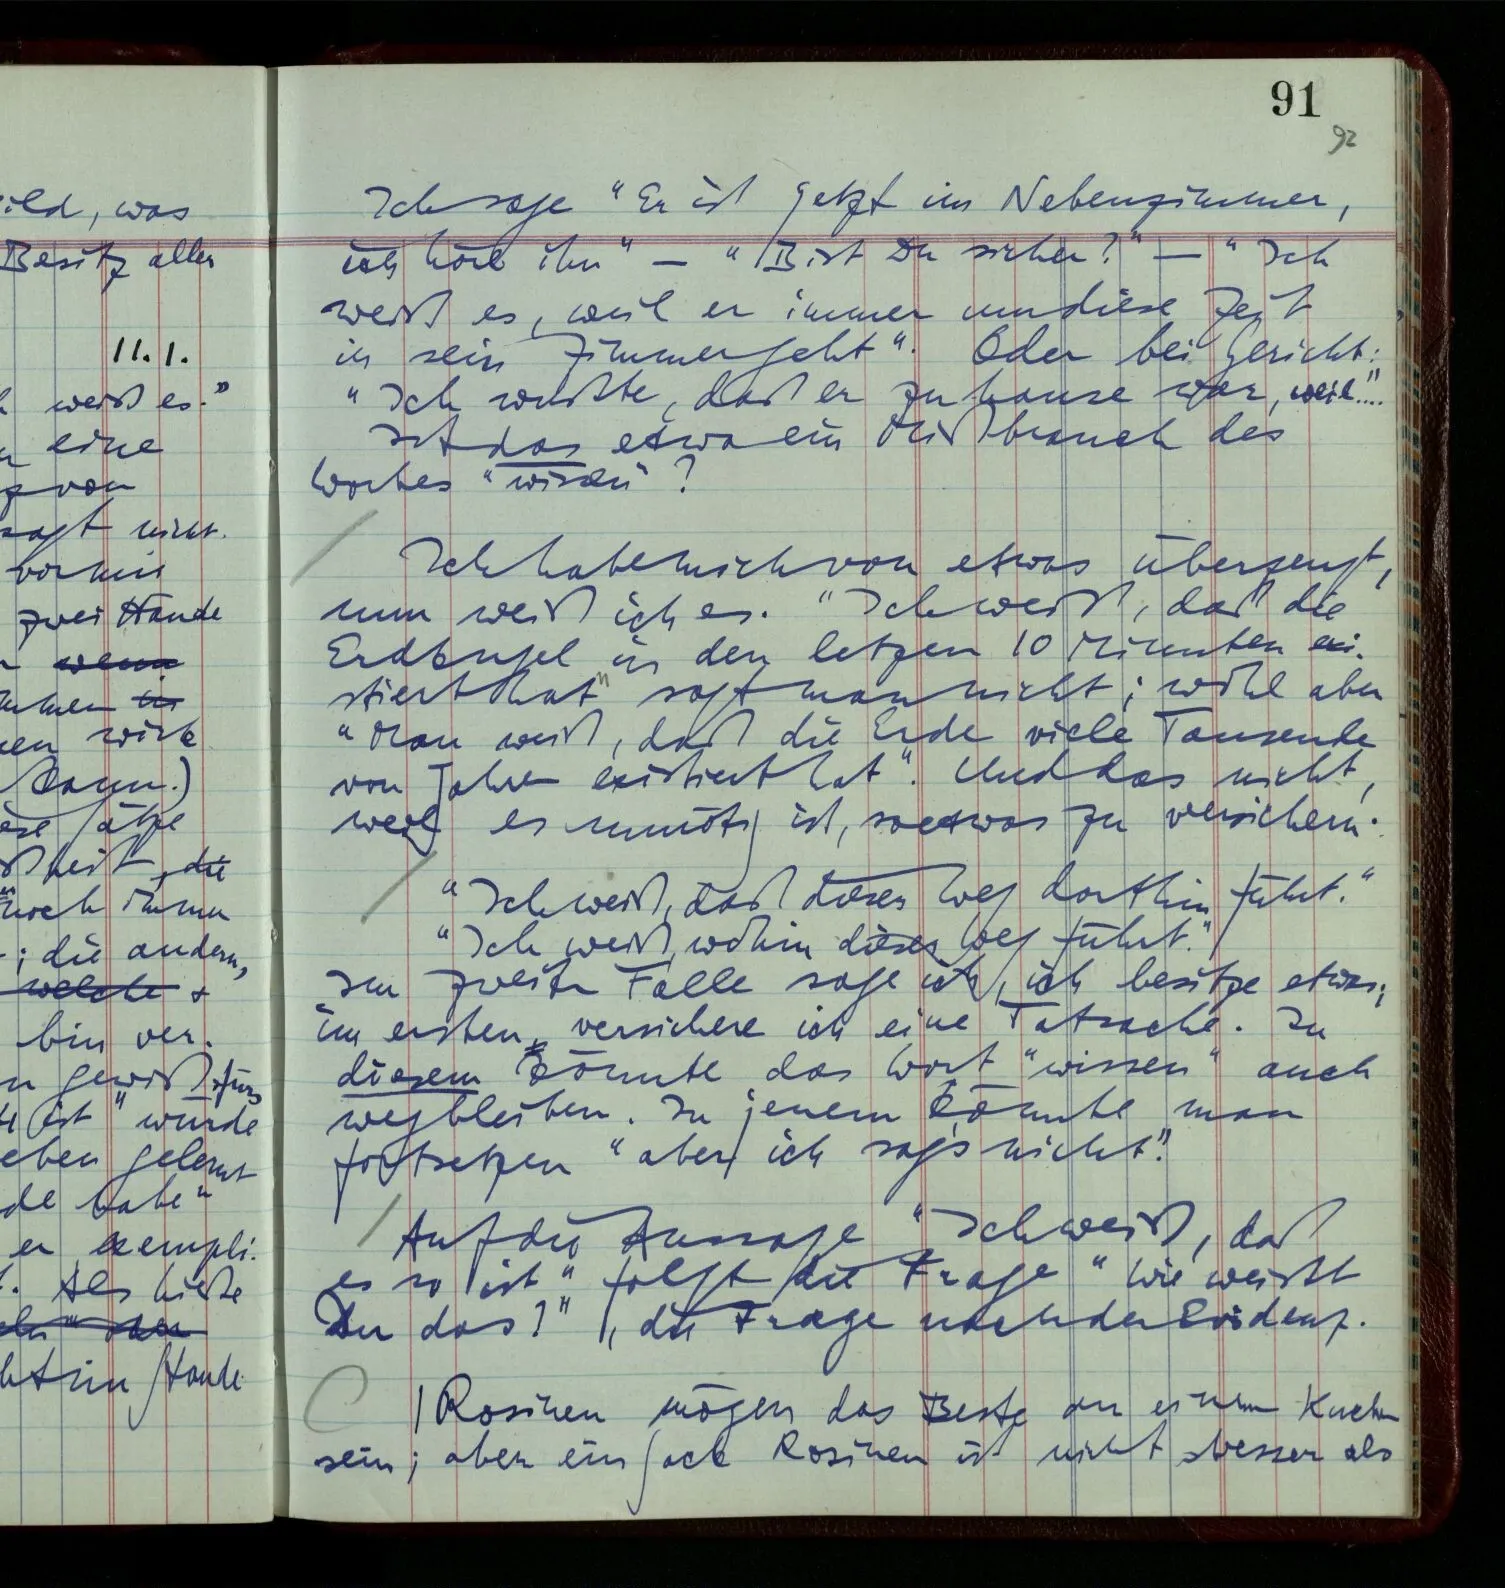 ild, was
Besitz aller
11.1.
weiß es."
eine
von
sagt nicht.
vorhin
zwei Hände
wenn
in
wirk
kann.)
Sätze
die
noch immer
; die andern,
welche
bin ver-
gewiß
ist" würde
eben gelernt
habe"
er exempli-
Als hieße
oder
Hande
91
92
Ich sage "Er ist jetzt im Nebenzimmer,
ich höre ihn" – "Bist Du sicher?" – "Ich
weiß es, weil er immer um diese Zeit
in sein Zimmer geht". Oder bei Gericht:
"Ich wußte, daß er zuhause war, weil..."
Ist das etwa ein Mißbrauch des
Wortes "wissen"?
Ich habe mich von etwas überzeugt,
nun weiß ich es. "Ich weiß, daß die
Erdkugel in den letzen 10 Minuten exi-
stiert hat" sagt man nicht; wohl aber
"Man weiß, daß die Erde viele Tausende
von Jahren existiert hat". Und das nicht,
weil es unnötig ist, so etwas zu versichern.
"Ich weiß, daß dieser Weg dorthin führt."
"Ich weiß, wohin dieser Weg führt."
Im zweiten Falle sage ich, ich besitze etwas;
im ersten, versichere ich eine Tatsache. In
diesem könnte das Wort "wissen" auch
wegbleiben. In jenem könnte man
fortsetzen "aber ich sag's nicht".
Auf die Aussage "Ich weiß, daß
es so ist" folgt die Frage "Wie weißt
Du das?", die Frage nach der Evidenz.
Rosinen mögen das Beste an einem Kuchen
sein; aber ein Sack Rosinen ist nicht besser als